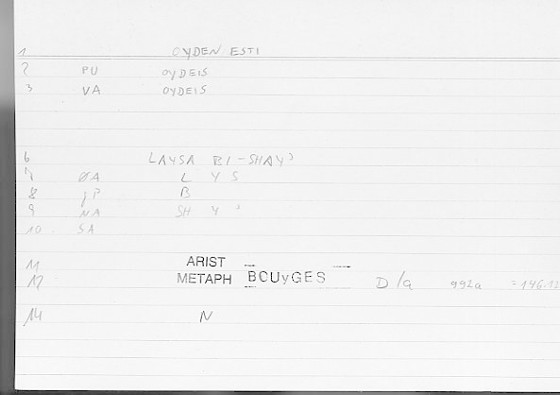 1 OYDEN ESTI
2 PU OYDEIS
3 VA OYDEIS
6 LAYSA BI-SHAY'
7 ØA L Y S
8 jP B
9 NA SH Y '
10 SA
11 ARIST
12 METAPH BOUyGES D/a 992a =146.12
14 N